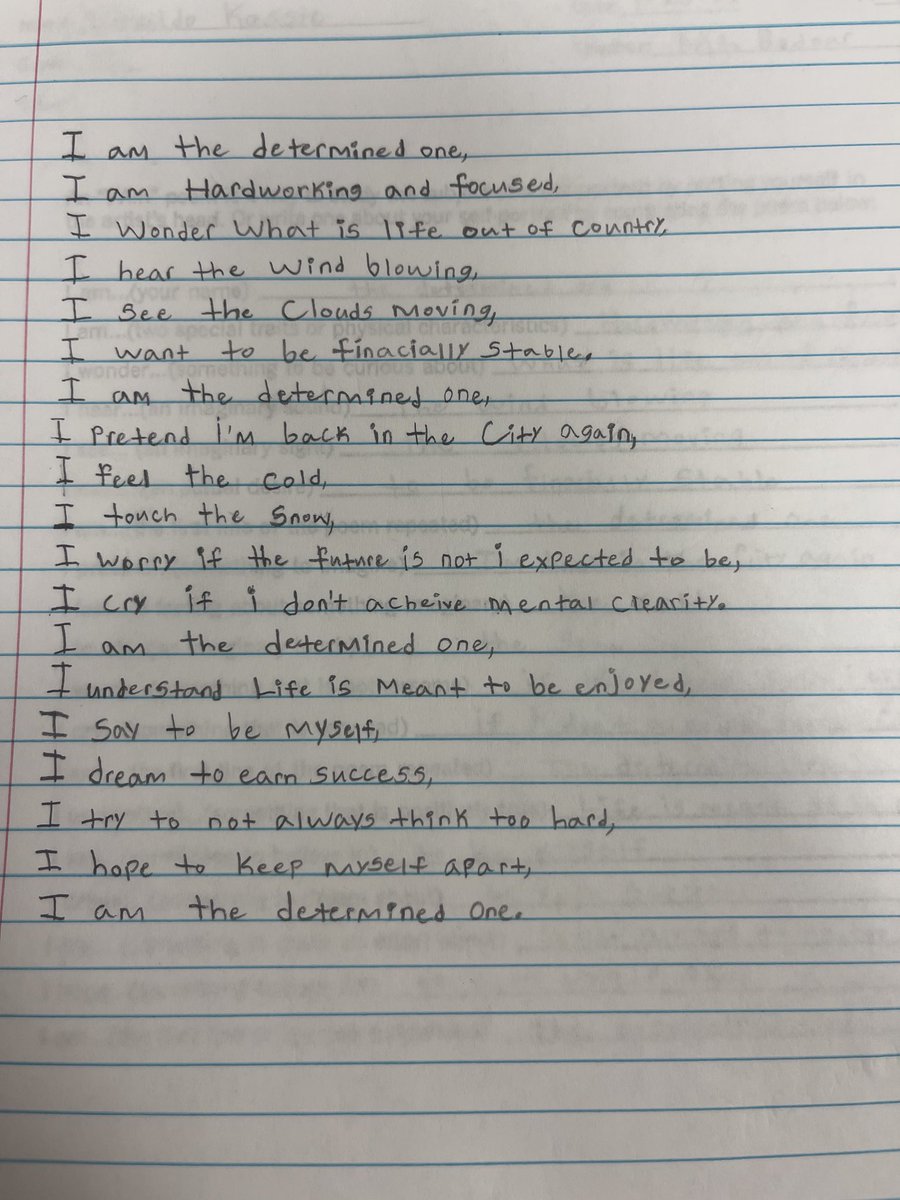 I am the determined one,
I am Hardworking and focused,
I Wonder What is life out of Country,
I hear the Wind blowing,
I See the Clouds moving,
I want to be finacially Stable.
I am the determined one,
I Pretend i'm back in the City again,
I feel the cold,
I touch the Snow,
I worry if the future is not i expected to be,
I cry if i don't acheive mental clearity.
I am the determined one,
I understand Life is Meant to be enjoyed,
I Say to be myself,
I dream to earn success,
I try to not always think too hard,
I hope to keep myself apart,
I am the determined one.